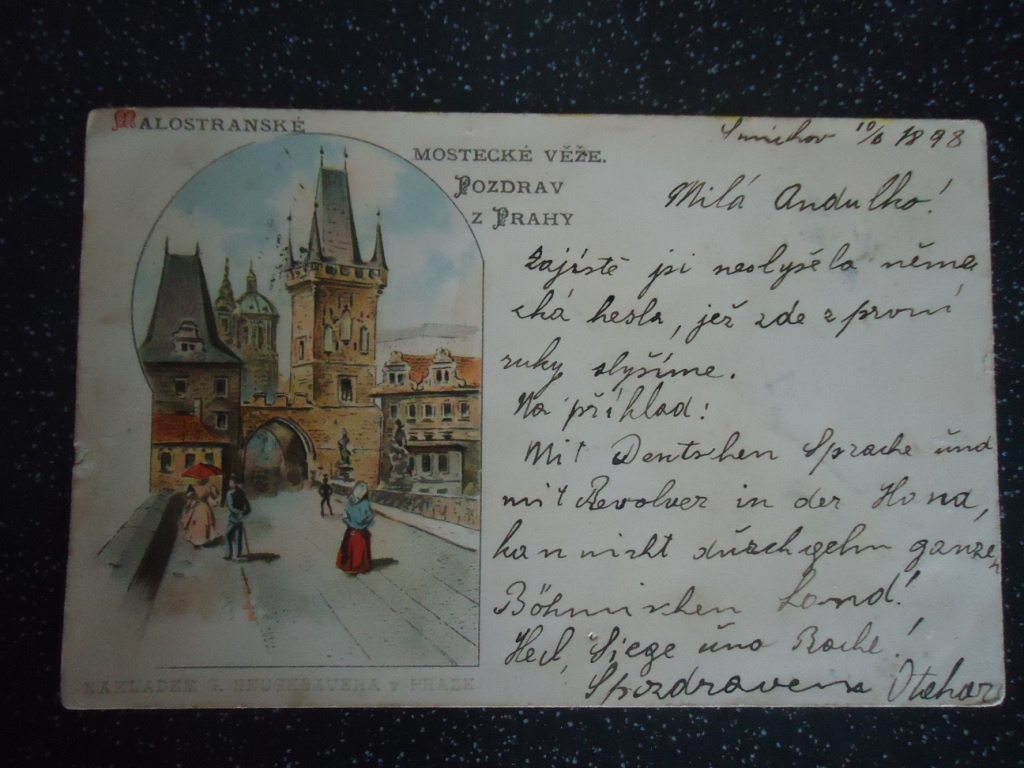 MALOSTRANSKÉ
MOSTECKÉ VĚŽE.
POZDRAV
Z PRAHY
Smíchov 10/6 1898
Milá Andulko!
Zajisté jsi neslyšela němec
ká hesla, jež zde z první
ruky slyšíme.
Na příklad:
Mit Deutschen Sprache und
mit Revolver in der Hand,
kan nicht durchgehn ganzen
Böhmischen Land!
Heil, Siege und Rache!
S pozdravem Otakar
NÁKLADEM G. NEUGEBAUERA V PRAZE